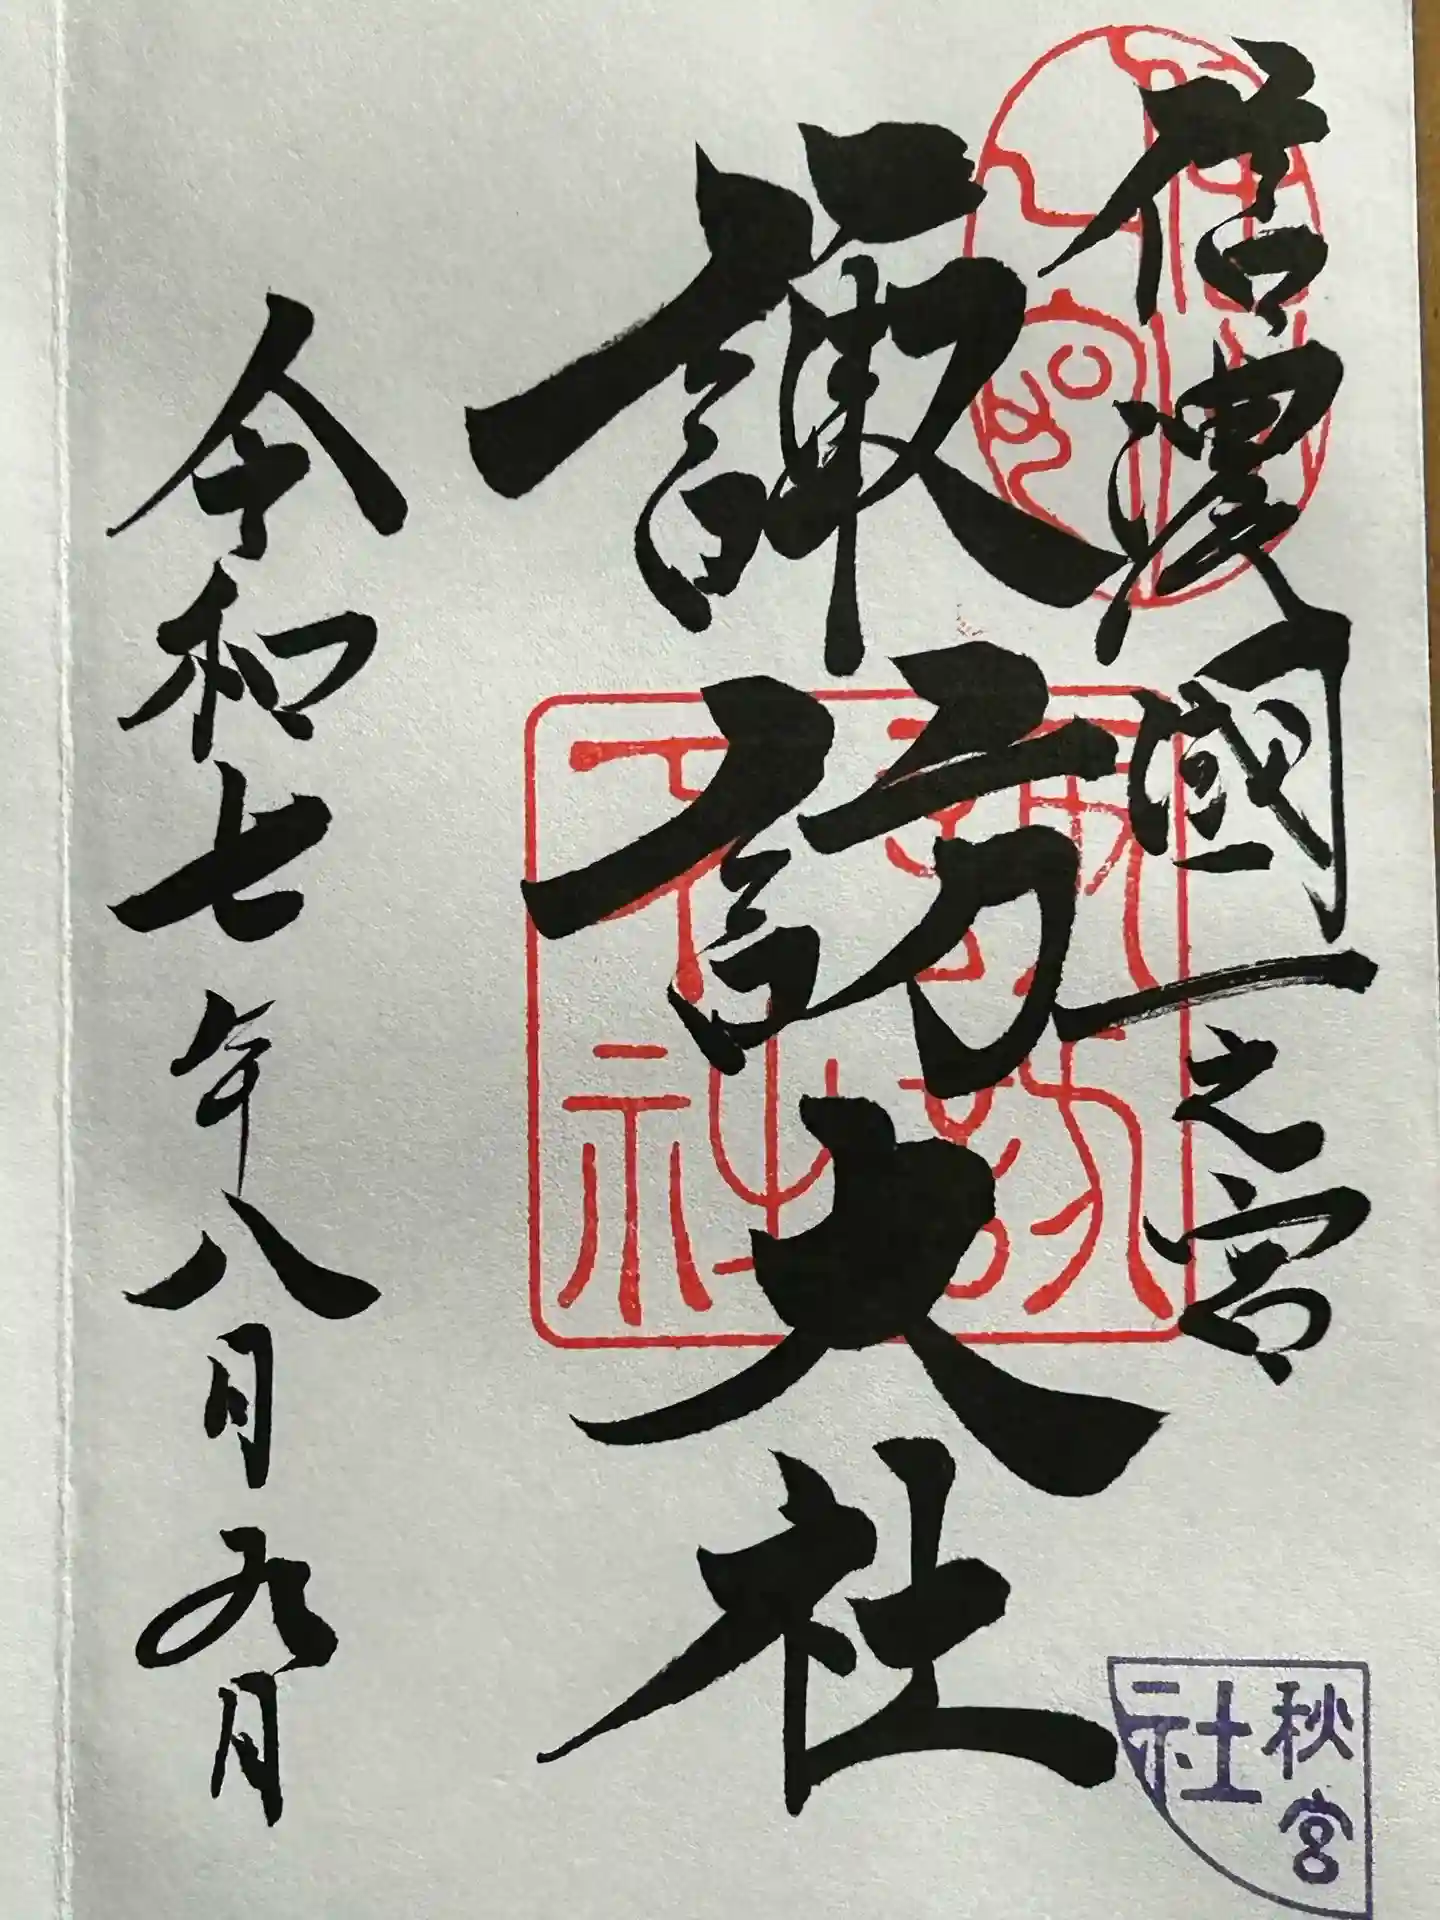 信濃國一之宮
諏訪大社
令和七年八月九月
諏訪
下社
秋宮
社